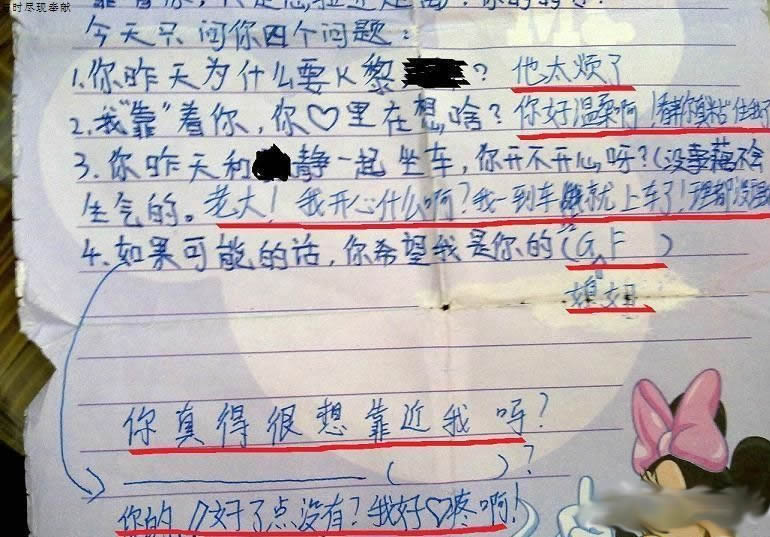 时尽现奉献
今天只问你四个问题:
1.你昨天为什么要K黎? 他太烦了
2.我"靠"着你,你♡里在想啥? 你好温柔啊!
3.你昨天和静一起坐车,你开不开心呀?(没事藕不会
生气的。老大!我开心什么啊?我一到车就就上车了!理都没理
4.如果可能的话,你希望我是你的(GF)
媳妇
你真得很想靠近我吗?
( )?
你的好了点没有?我好♡疼啊!